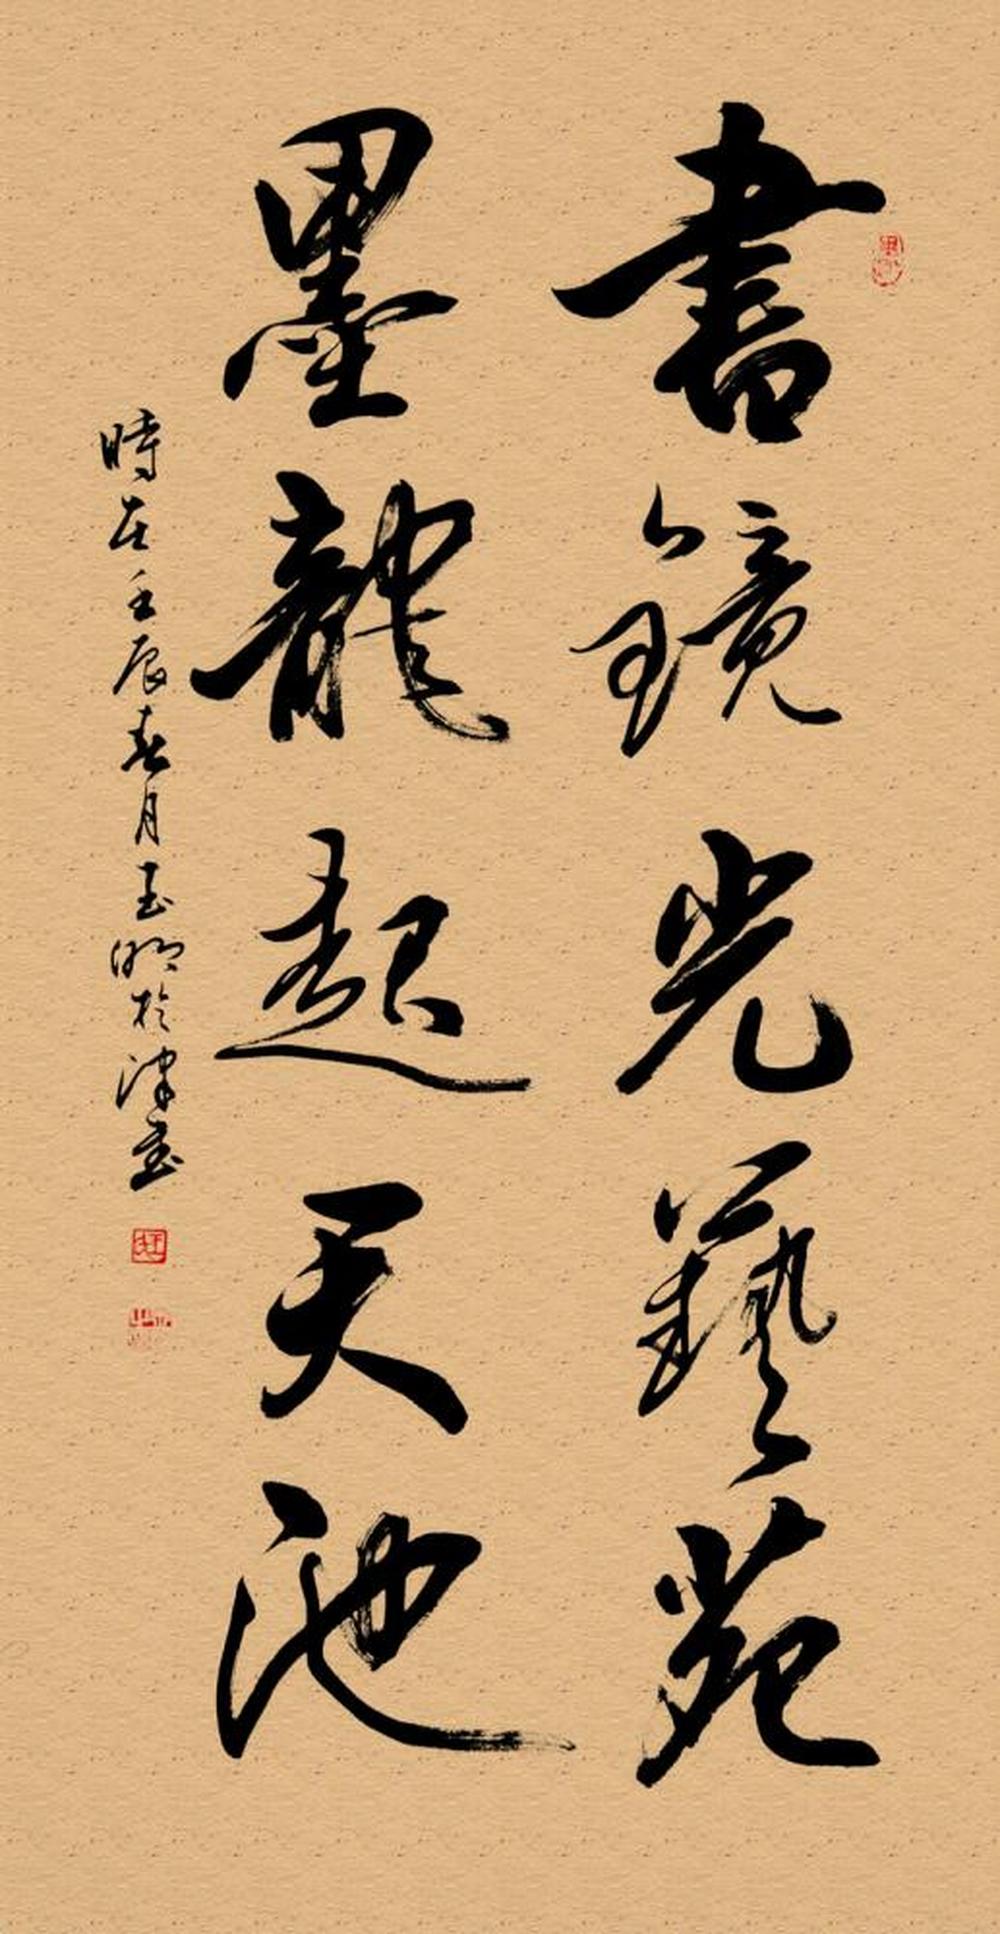 書鏡光藝苑
墨龍起天池
時在壬辰春月玉明於津雲